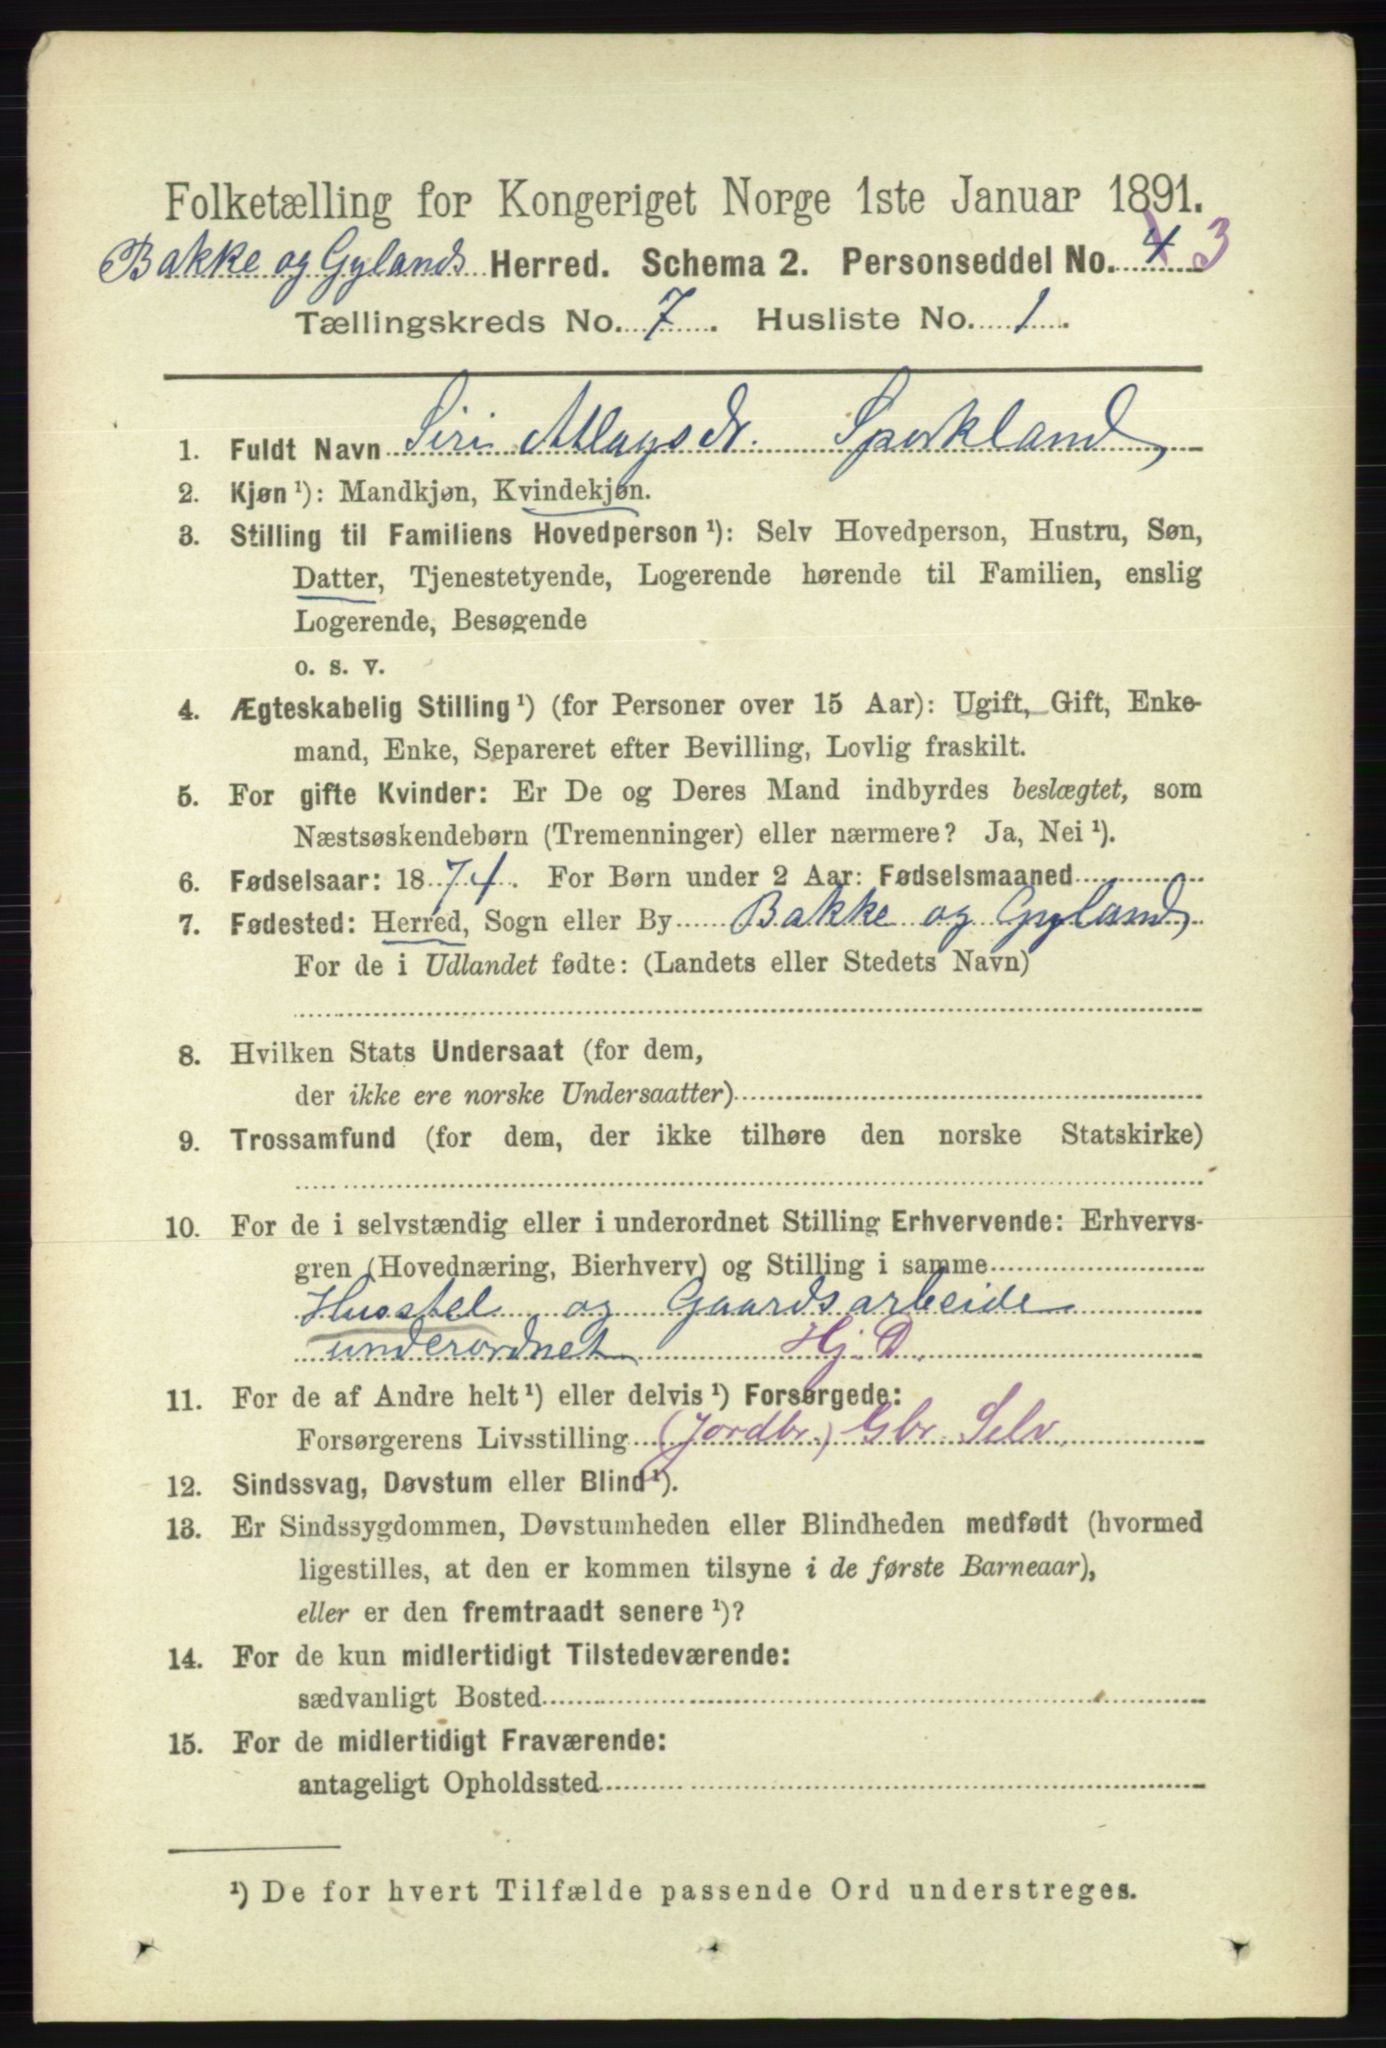 Folketælling for Kongeriget Norge 1ste Januar 1891.
Bakke og Gylands Herred. Schema 2. Personseddel No. 4 3
Tællingskreds No. 7. Husliste No. 1.
1. Fuldt Navn Siri Atlagsdr. Spirkland
2. Kjøn ¹): Mandkjøn, Kvindekjøn.
3. Stilling til Familiens Hovedperson ¹): Selv Hovedperson, Hustru, Søn,
Datter, Tjenestetyende, Logerende hørende til Familien, enslig
Logerende, Besøgende
o. s. v.
4. Ægteskabelig Stilling ¹) (for Personer over 15 Aar): Ugift, Gift, Enke-
mand, Enke, Separeret efter Bevilling, Lovlig fraskilt.
5. For gifte Kvinder: Er De og Deres Mand indbyrdes beslægtet, som
Næstsøskendebørn (Tremenninger) eller nærmere? Ja, Nei ¹).
6. Fødselsaar: 1874. For Børn under 2 Aar: Fødselsmaaned
7. Fødested: Herred, Sogn eller By Bakke og Gyland
For de i Udlandet fødte: (Landets eller Stedets Navn)
8. Hvilken Stats Undersaat (for dem,
der ikke ere norske Undersaatter)
9. Trossamfund (for dem, der ikke tilhøre den norske Statskirke)
10. For de i selvstændig eller i underordnet Stilling Erhvervende: Erhvervs-
gren (Hovednæring, Bierhverv) og Stilling i samme
Husstel og Gaardsarbeide
underordnet Hj. D.
11. For de af Andre helt ¹) eller delvis ¹) Forsørgede:
Forsørgerens Livsstilling (Jordbr.) Gbr. Selv.
12. Sindssvag, Døvstum eller Blind ¹).
13. Er Sindssygdommen, Døvstumheden eller Blindheden medfødt (hvormed
ligestilles, at den er kommen tilsyne i de første Barneaar),
eller er den fremtraadt senere ¹)?
14. For de kun midlertidigt Tilstedeværende:
sædvanligt Bosted
15. For de midlertidigt Fraværende:
antageligt Opholdssted
¹) De for hvert Tilfælde passende Ord understreges.